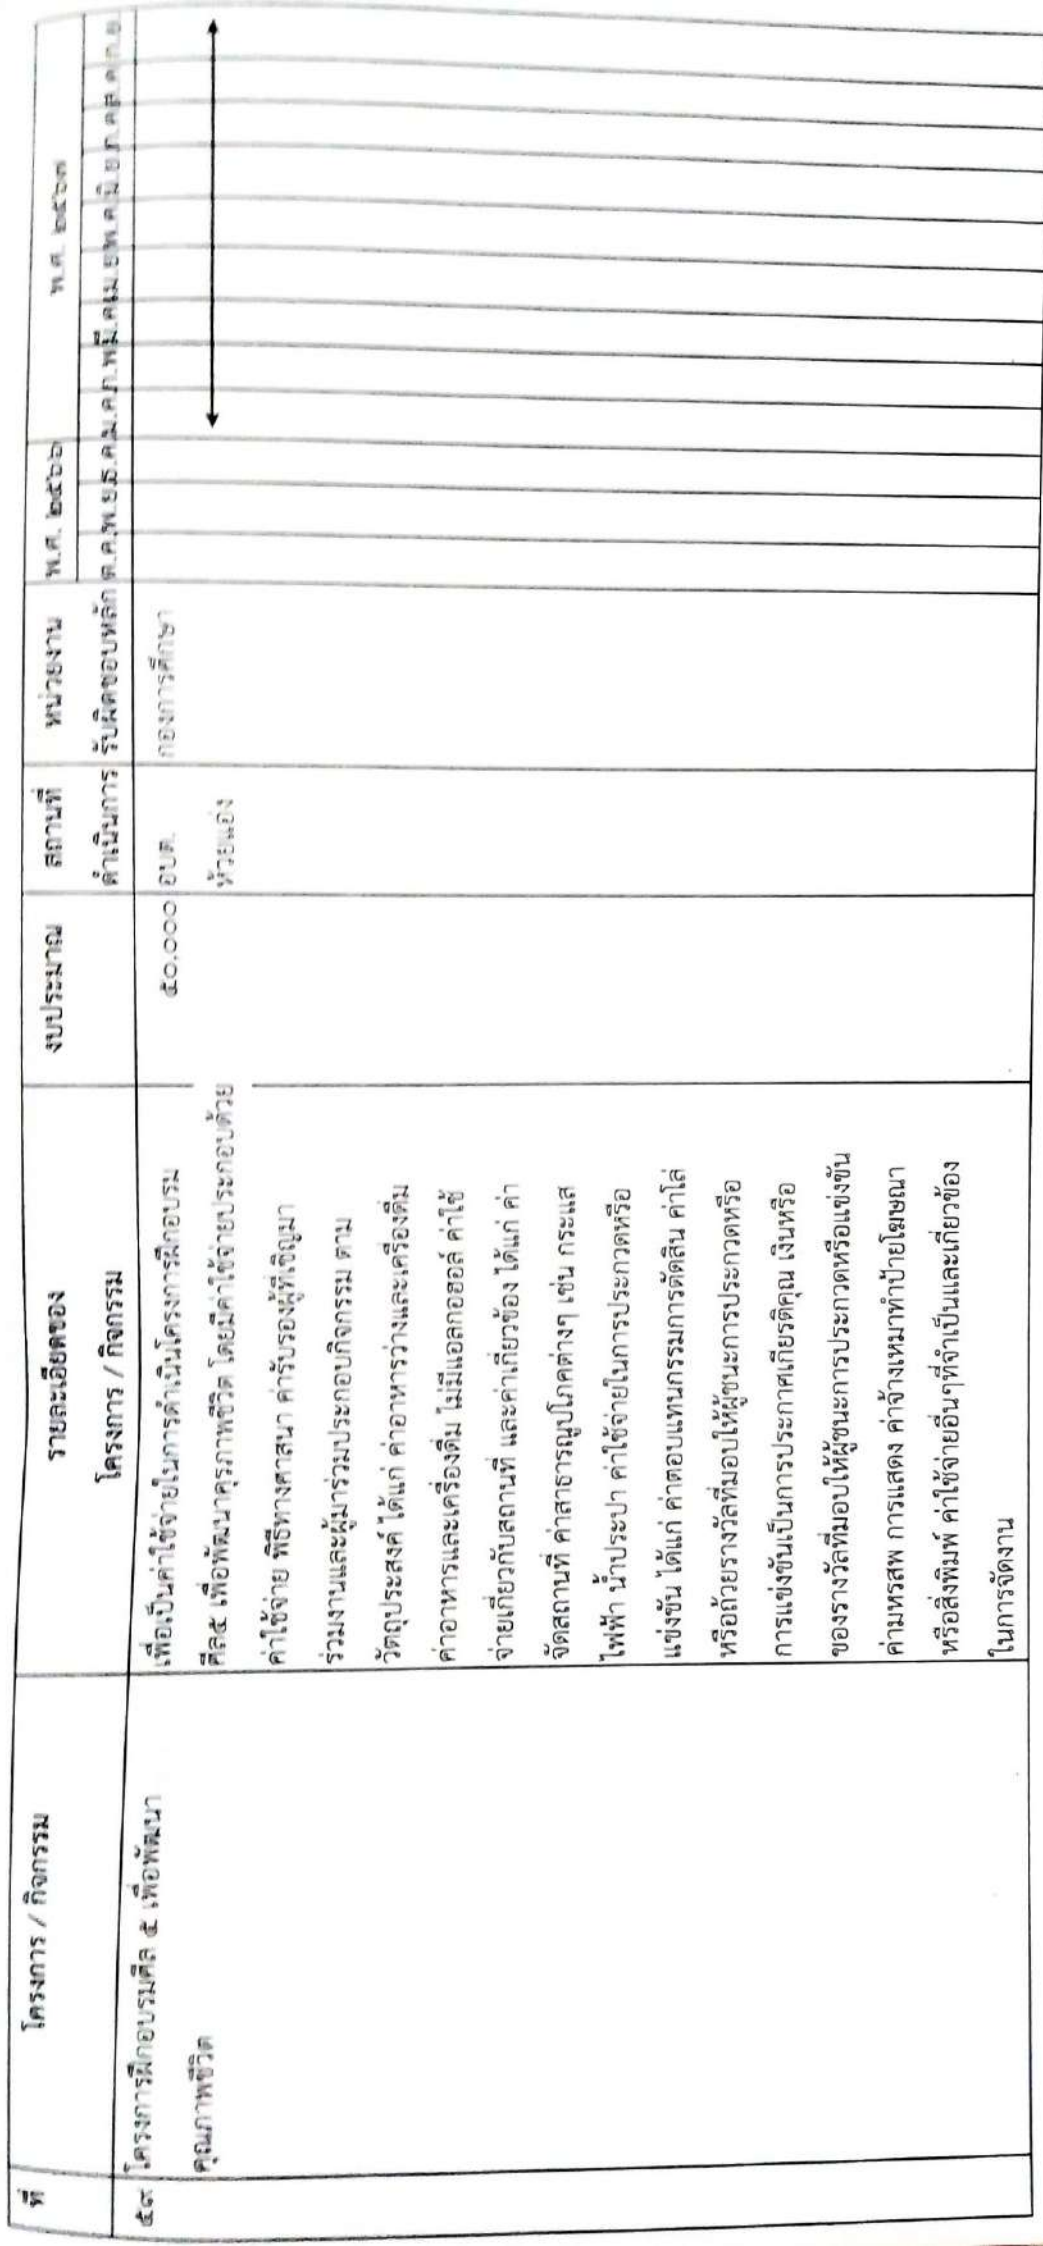 ที่
โครงการ / กิจกรรม
รายละเอียดของ
โครงการ / กิจกรรม
งบประมาณ
สถานที่
ดำเนินการ
หน่วยงาน
รับผิดชอบหลัก
พ.ศ. ๒๕๖๖
พ.ศ. ๒๕๖๗
ต.ค. พ.ย. ธ.ค. ม.ค. ก.พ. มี.ค. เม.ย. พ.ค. มิ.ย. ก.ค. ส.ค. ก.ย.
๕๙
โครงการฝึกอบรมศีล ๕ เพื่อพัฒนา
คุณภาพชีวิต
เพื่อเป็นค่าใช้จ่ายในการดำเนินโครงการฝึกอบรม
ศีล๕ เพื่อพัฒนาคุรภาพชีวิต โดยมีค่าใช้จ่ายประกอบด้วย
ค่าใช้จ่าย พิธีทางศาสนา ค่ารับรองผู้ที่เชิญมา
ร่วมงานและผู้มาร่วมประกอบกิจกรรม ตาม
วัตถุประสงค์ ได้แก่ ค่าอาหารว่างและเครื่องดื่ม
ค่าอาหารและเครื่องดื่ม ไม่มีแอลกอฮอล์ ค่าใช้
จ่ายเกี่ยวกับสถานที่ และค่าเกี่ยวข้อง ได้แก่ ค่า
จัดสถานที่ ค่าสาธารณูปโภคต่างๆ เช่น กระแส
ไฟฟ้า น้ำประปา ค่าใช้จ่ายในการประกวดหรือ
แข่งขัน ได้แก่ ค่าตอบแทนกรรมการตัดสิน ค่าโล่
หรือถ้วยรางวัลที่มอบให้ผู้ชนะการประกวดหรือ
การแข่งขันเป็นการประกาศเกียรติคุณ เงินหรือ
ของรางวัลที่มอบให้ผู้ชนะการประกวดหรือแข่งขัน
ค่ามหรสพ การแสดง ค่าจ้างเหมาทำป้ายโฆษณา
หรือสิ่งพิมพ์ ค่าใช้จ่ายอื่นๆที่จำเป็นและเกี่ยวข้อง
ในการจัดงาน
๕๐.๐๐๐
อบต.
ห้วยแอ่ง
กองการศึกษา